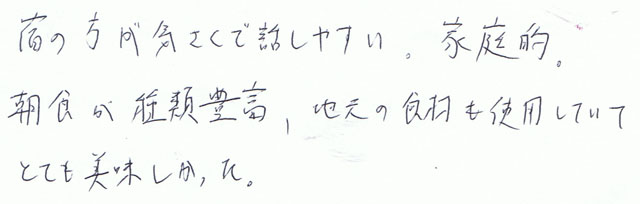 宿の方が気さくで話しやすい。家庭的。
朝食が種類豊富,地元の食材も使用していて
とても美味しかった。